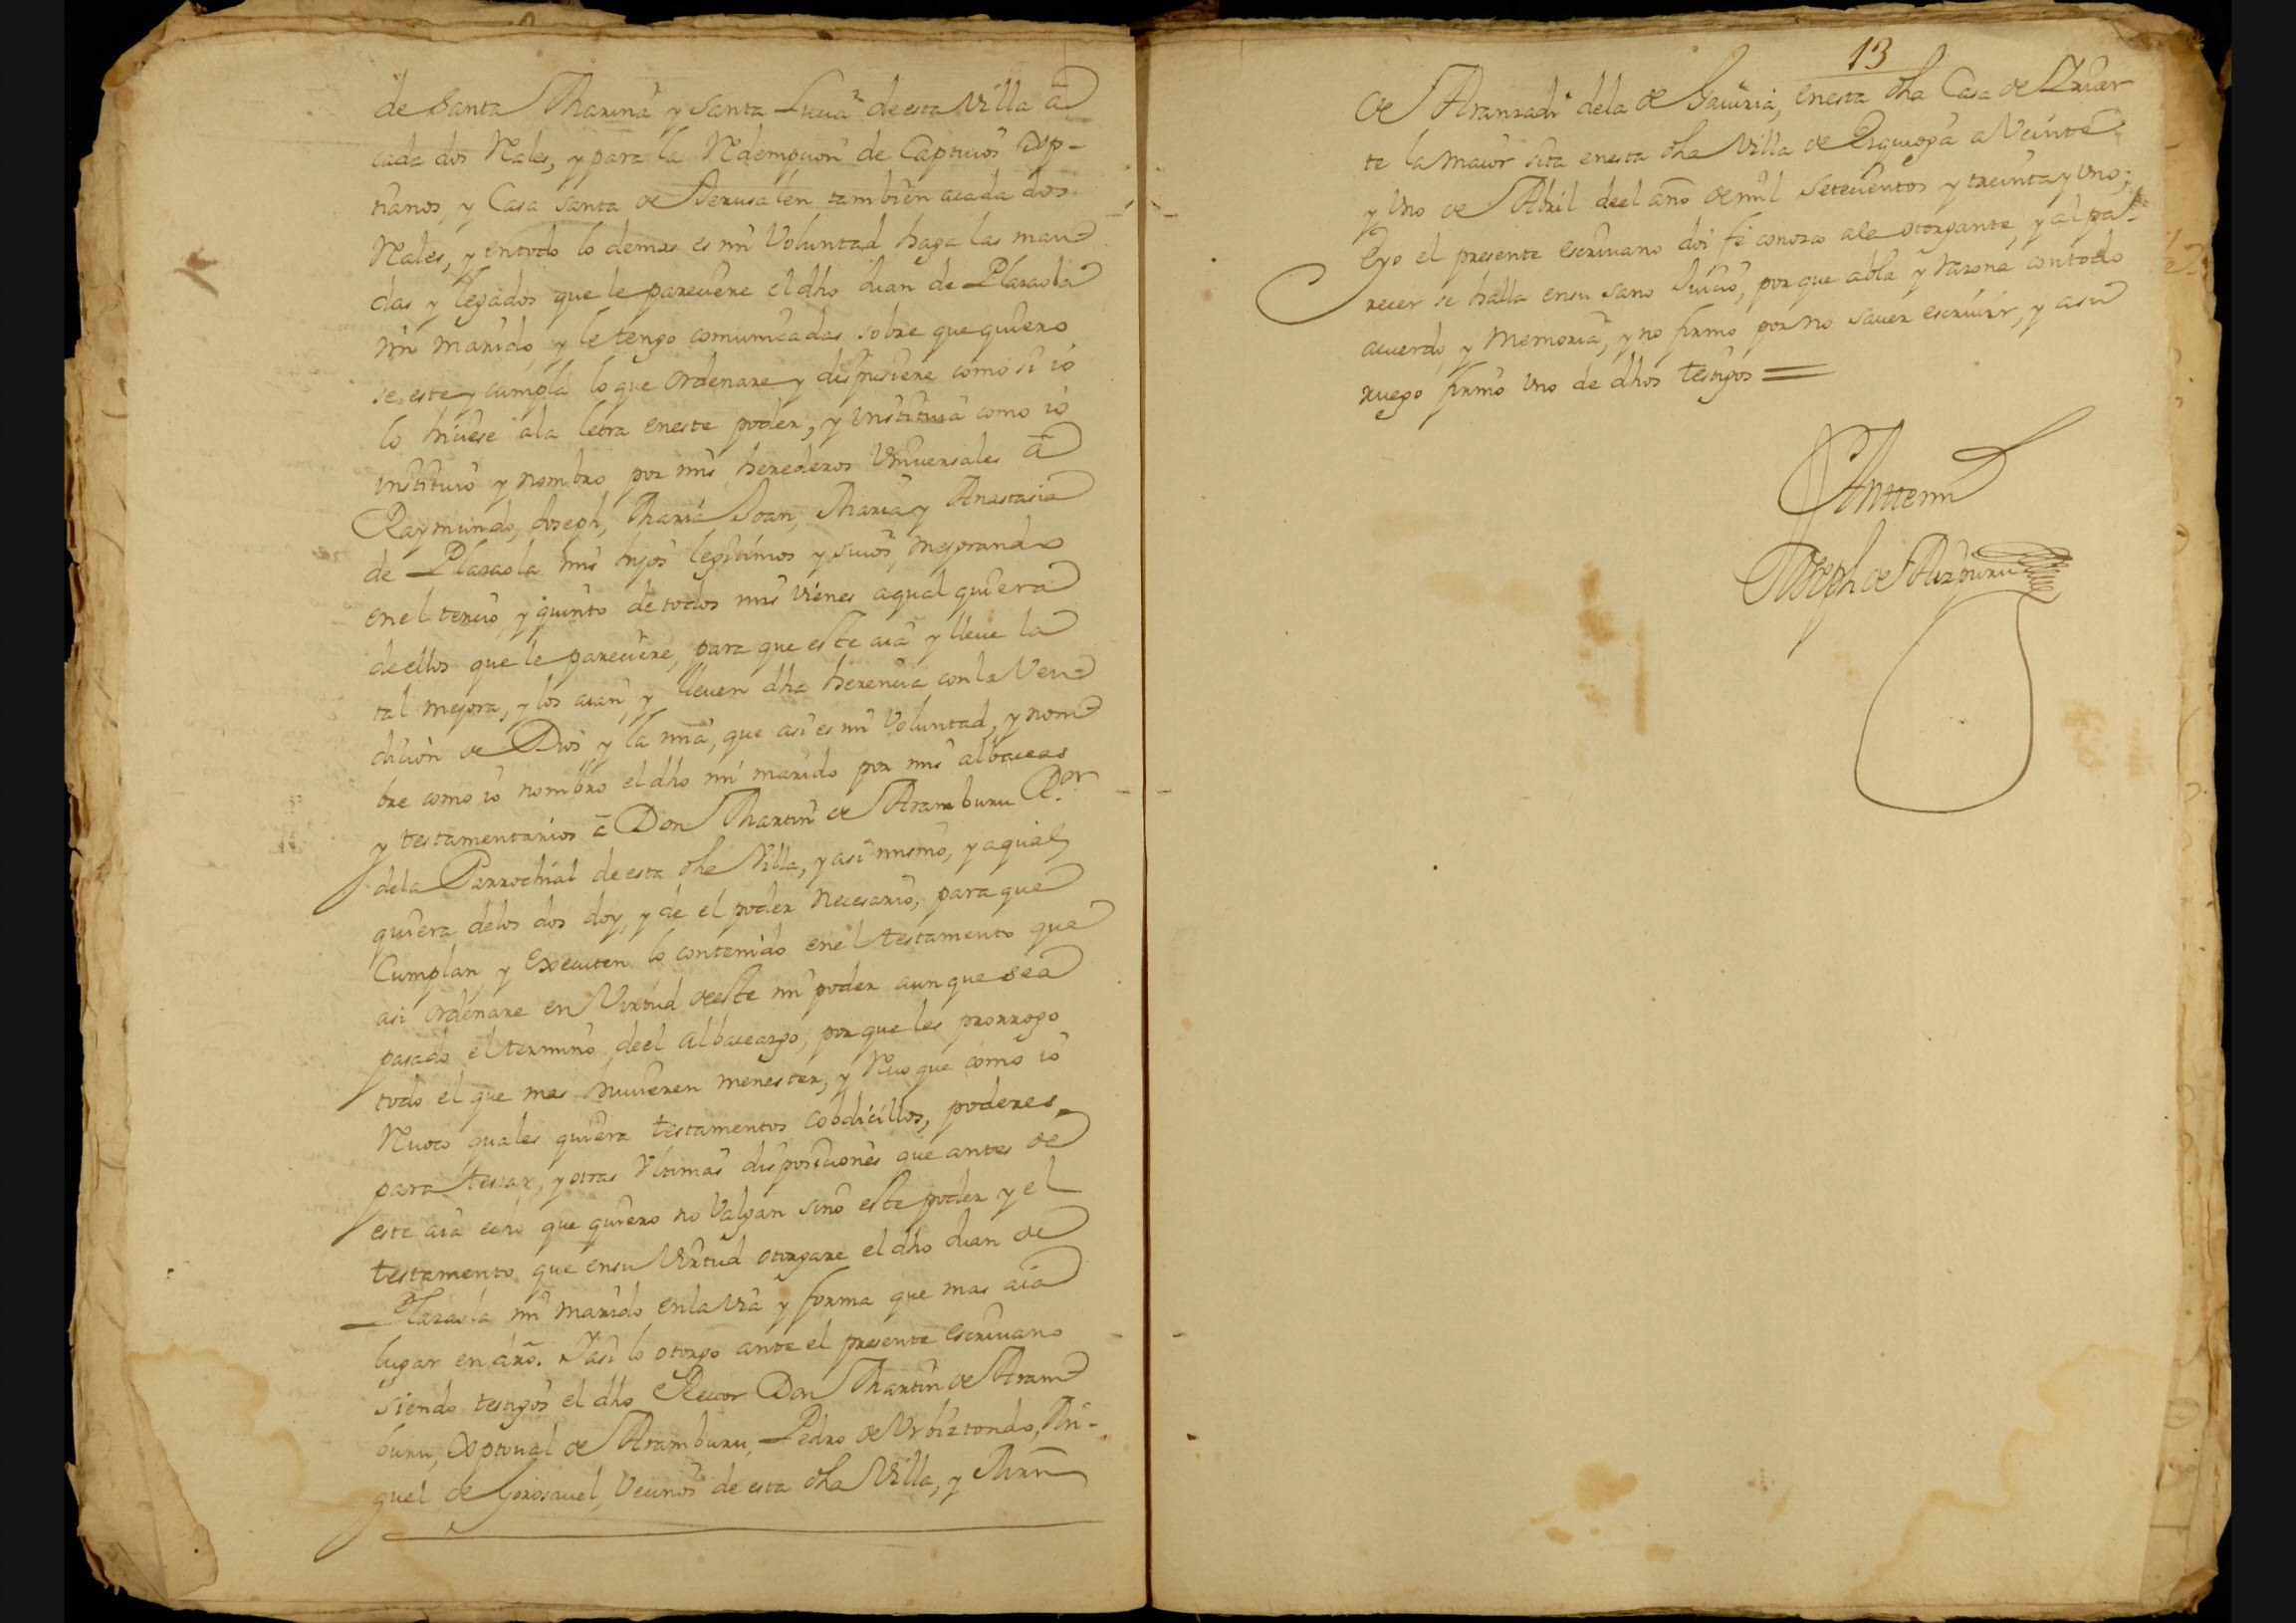 de Santa Marina y Santa Lucia de esta Villa a
cada dos Rales, y para la Redempcion de Captivos Xpt-
tianos, y Casa Santa de Jerusalen tambien a cada dos
Rales, y en todo lo demas es mi Voluntad haga las man
das y legados que le pareciere el dho Juan de Plazaola
mi marido, y le tengo comunicadas sobre que quiero
se este y cumpla lo que ordenare y dispusiere como si io
lo hiciese ala letra en este poder, y instituia como io
instituio y nombro por mis herederos Universales a
Raymundo, Joseph, Maria Joan, Maria y Anastasia
de Plazaola mis hijos legitimos y suios, mejorando
en el tercio y quinto de todos mis vienes a qual quiera
de ellos que le pareciere, para que este aia y lleve la
tal mejora, y los aian y lleven dha herencia con la Ven
dicion de Dios y la mia, que asi es mi Voluntad, y nom
bre como io nombro el dho mi marido por mis albaceas
y testamentarios a Don Martin de Aramburu Ror
dela Parrochial de esta dha Villa, y asi mismo, y a qual
quiera delos dos doy, y de el poder necesario, para que
Cumplan y Executen lo contenido en el testamento que
asi ordenare en Virtud de este mi poder aunque sea
pasado el termino de el albaceazgo, por que les prorrogo
todo el que mas huvieren menester, y Revoque como io
Revoco quales quiera testamentos cobdicillos, poderes
para testar, y otras Ultimas disposiciones que antes de
este aia echo que quiero no Valgan sino este poder y el
testamento que en su Virtud otorgare el dho Juan de
Plazaola mi marido en la via y forma que mas aia
lugar en dro. Y asi lo otorgo ante el presente escrivano
siendo testigos el dho Rector Don Martin de Aram
buru, Xptoval de Aramburu, Pedro de Urbiztondo, Mi-
guel de Gorosavel, Vecinos de esta dha Villa, y Mrn
13
de Aranzadi dela de Gaviria, en esta dha Casa de
te la maior sita en esta dha Villa de Ezquioga a Veinte
y Uno de Abril de el año de mil setecientos y treinta y Uno;
E yo el presente escrivano doi fe conozco ala otorgante, y al pa-
recer se halla en su sano Juicio, por que abla y razona con todo
acuerdo y memoria, y no firmo por no saver escrivir, y a su
ruego firmo Uno de dhos testigos =
Ante mi
Joseph de Aizpuru